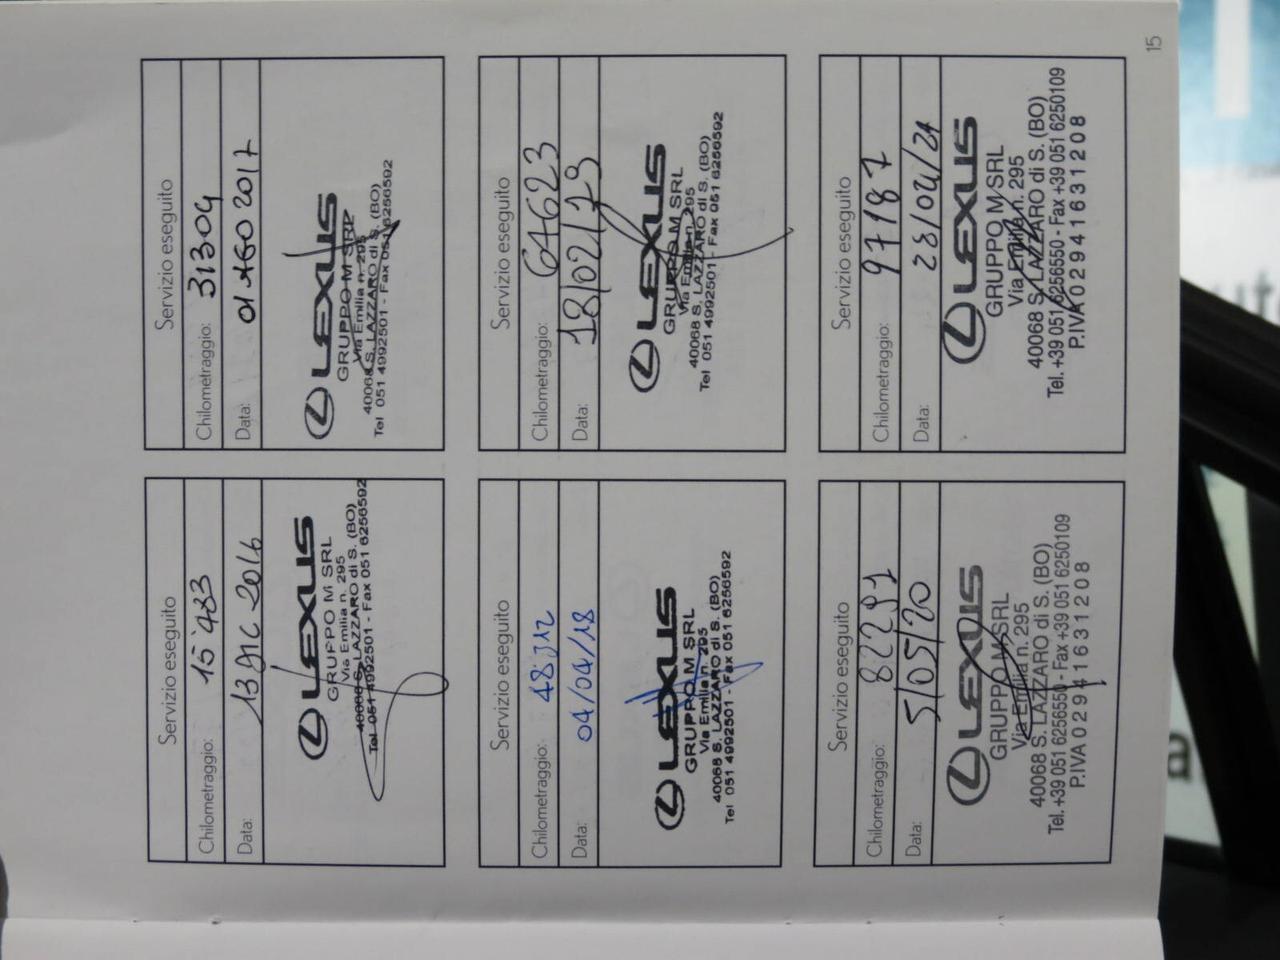 Servizio eseguito
Chilometraggio: 15'483
Data: 13 DIC 2016
LEXUS
GRUPPO M SRL
Via Emilia n. 295
40068 S. LAZZARO di S. (BO)
Tel 051 4992501 - Fax 051 6256592
Servizio eseguito
Chilometraggio: 31304
Data: 2017
LEXUS
GRUPPO M SRL
Via Emilia n. 295
40068 S. LAZZARO di S. (BO)
Tel 051 4992501 - Fax 051 6256592
Servizio eseguito
Chilometraggio: 48312
Data: 04/04/18
LEXUS
GRUPPO M SRL
Via Emilia n. 295
40068 S. LAZZARO di S. (BO)
Tel 051 4992501 - Fax 051 6256592
Servizio eseguito
Chilometraggio: 64623
Data: 18/02/19
LEXUS
GRUPPO M SRL
Via Emilia n. 295
40068 S. LAZZARO di S. (BO)
Tel 051 4992501 - Fax 051 6256592
Servizio eseguito
Chilometraggio: 82291
Data: 5/05/20
LEXUS
GRUPPO M SRL
Via Emilia n. 295
40068 S. LAZZARO di S. (BO)
Tel. +39 051 6256550 - Fax +39 051 6250109
P.IVA 02941631208
Servizio eseguito
Chilometraggio: 97187
Data: 28/04/21
LEXUS
GRUPPO M SRL
Via Emilia n. 295
40068 S. LAZZARO di S. (BO)
Tel. +39 051 6256550 - Fax +39 051 6250109
P.IVA 02941631208
15